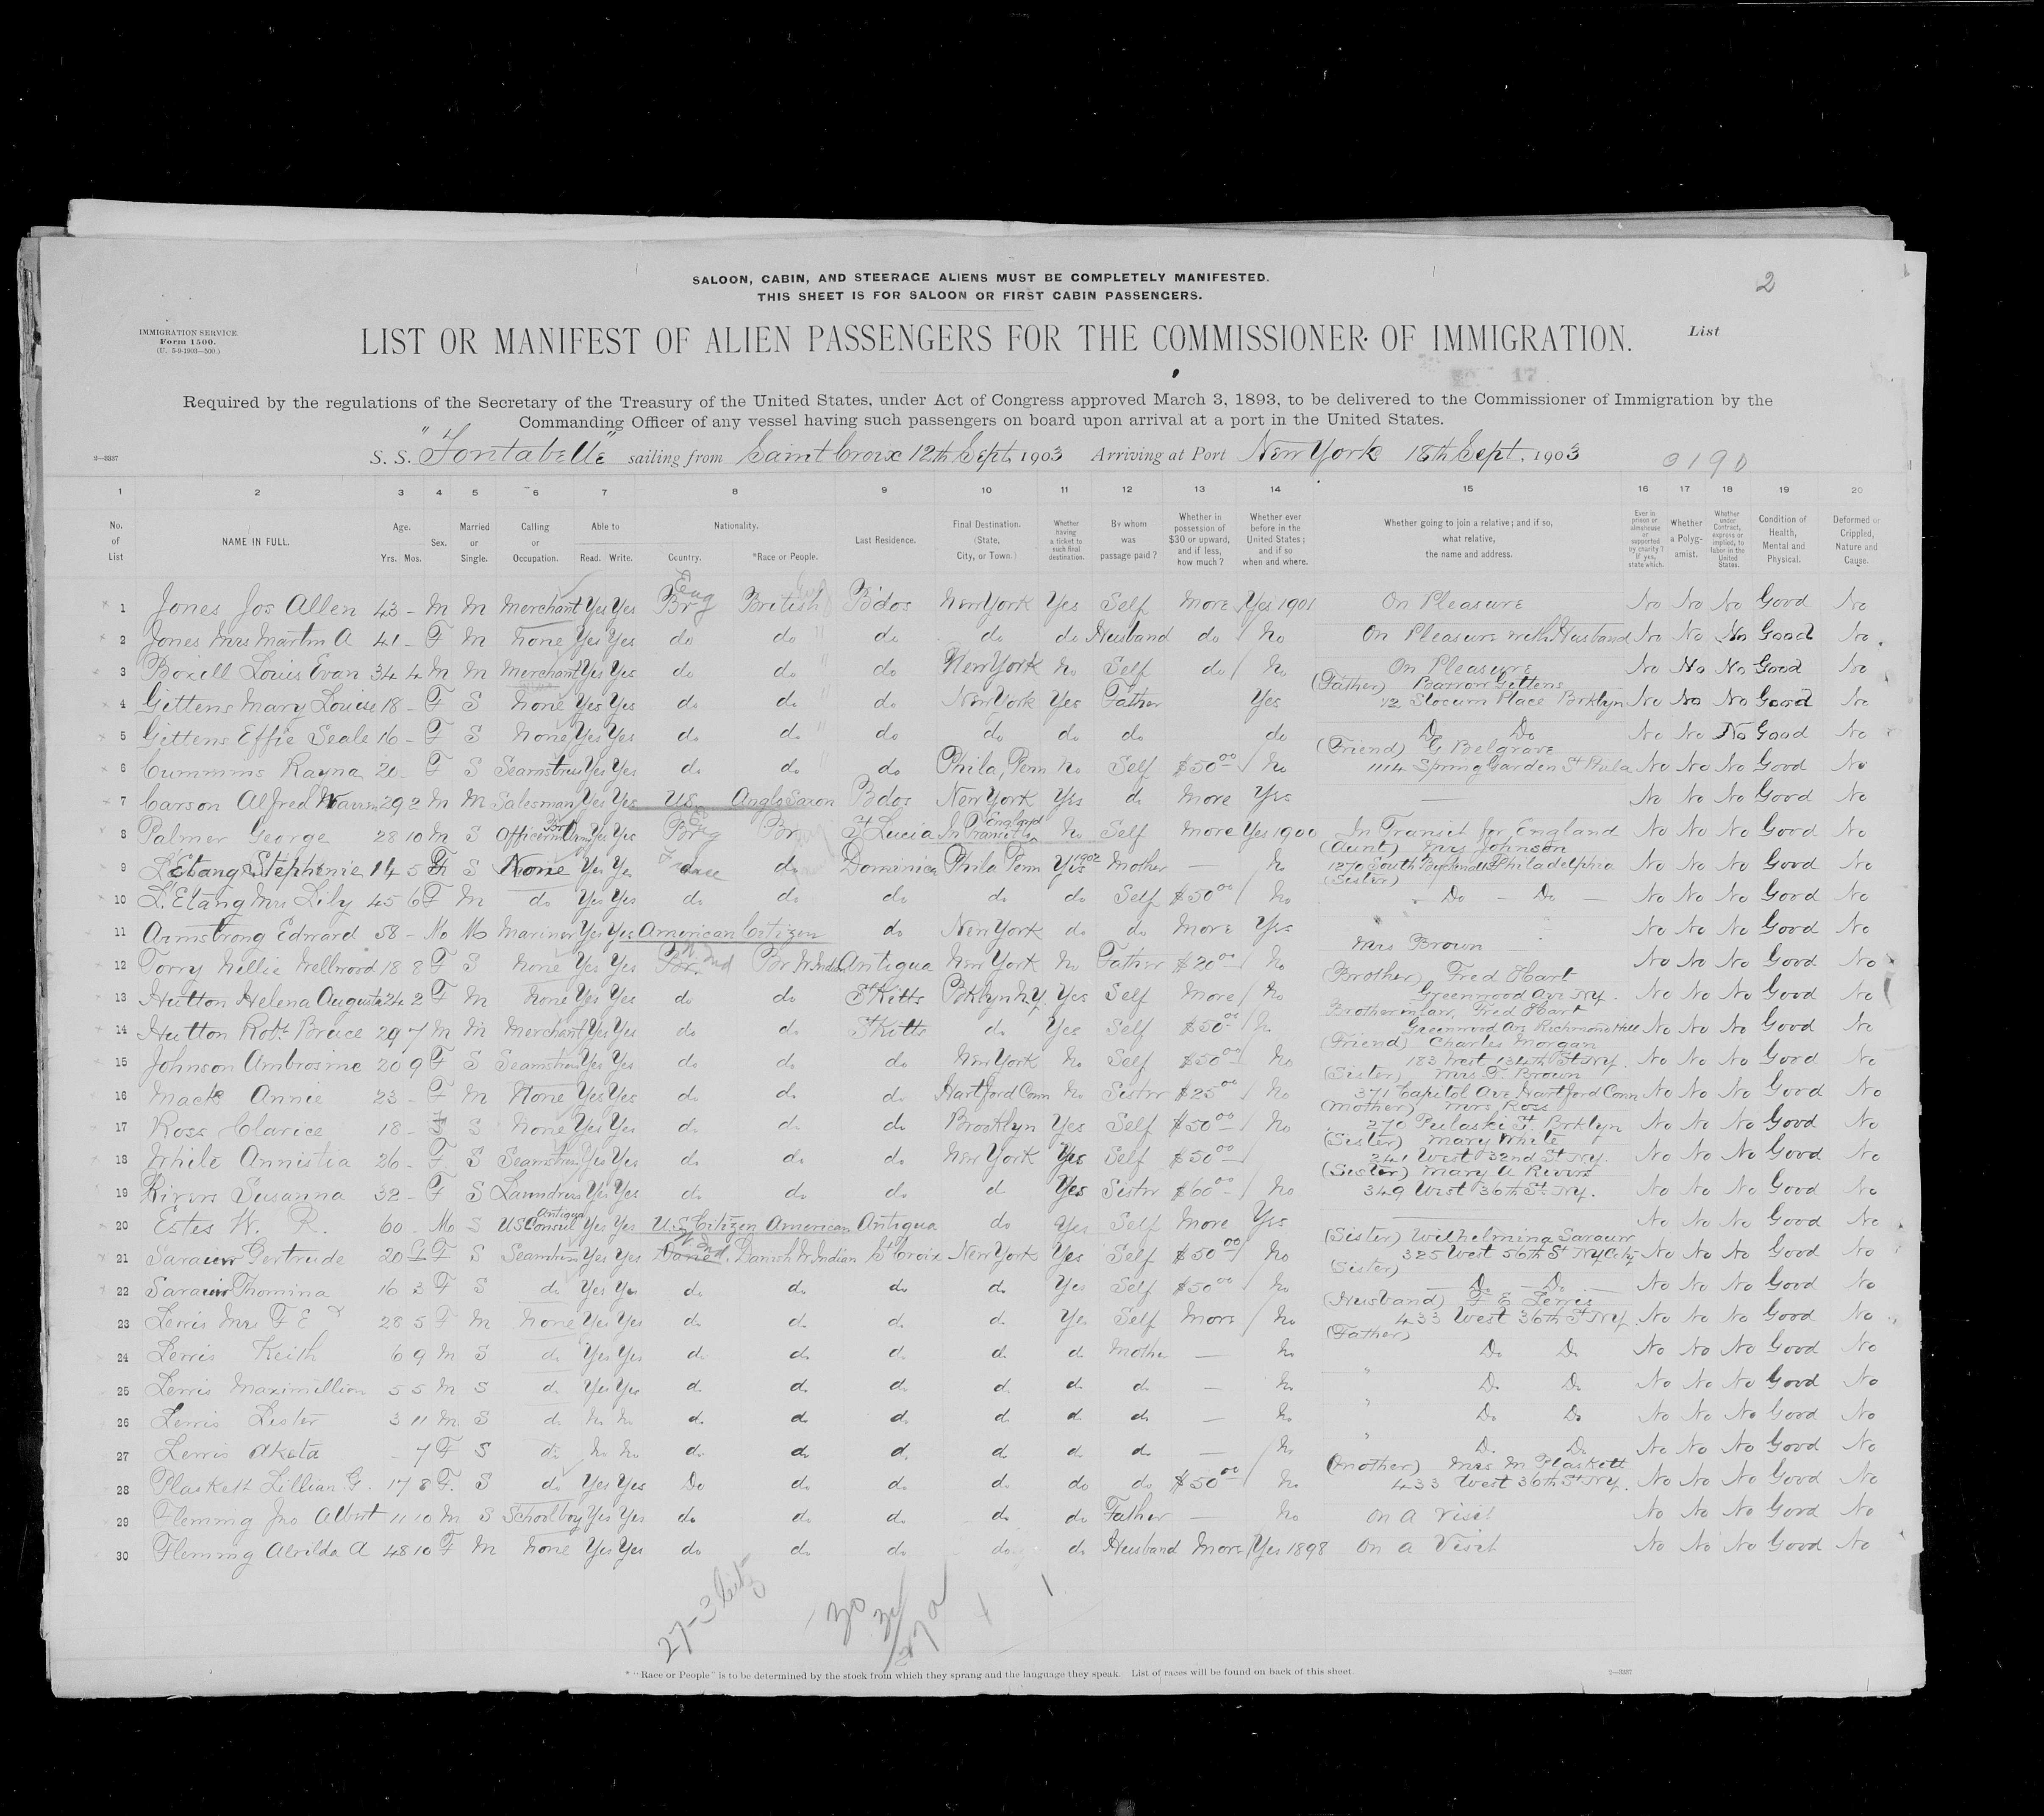 2
SALOON, CABIN, AND STEERAGE ALIENS MUST BE COMPLETELY MANIFESTED.
THIS SHEET IS FOR SALOON OR FIRST CABIN PASSENGERS.
IMMIGRATION SERVICE
Form 1500.
(U. 5-9-1903—500)
LIST OR MANIFEST OF ALIEN PASSENGERS FOR THE COMMISSIONER OF IMMIGRATION.
List
17
Required by the regulations of the Secretary of the Treasury of the United States, under Act of Congress approved March 3, 1893, to be delivered to the Commissioner of Immigration by the
Commanding Officer of any vessel having such passengers on board upon arrival at a port in the United States.
2—3337
S. S. "Fontabelle" sailing from Saint Croix 12th Sept. 1903 Arriving at Port New York 18th Sept. 1903
0190
1 2 3 4 5 6 7 8 9 10 11 12 13 14 15 16 17 18 19 20
No. of List
NAME IN FULL.
Age. Yrs. Mos.
Sex.
Married or Single.
Calling or Occupation.
Able to Read. Write.
Nationality. Country. *Race or People.
Last Residence.
Final Destination. (State, City, or Town.)
Whether having a ticket to such final destination.
By whom was passage paid?
Whether in possession of $30 or upward, and if less, how much?
Whether ever before in the United States; and if so when and where.
Whether going to join a relative; and if so, what relative, the name and address.
Ever in prison or almshouse or supported by charity? If yes, state which.
Whether a Polygamist.
Whether under Contract, express or implied, to labor in the United States.
Condition of Health, Mental and Physical.
Deformed or Crippled, Nature and Cause.
1 Jones Jos Allen 43 - M M Merchant Yes Yes Br Eng British B'dos New York Yes Self More Yes 1901 On Pleasure No No No Good No
2 Jones Mrs Martin A 41 - F M None Yes Yes do do do do do Husband do No On Pleasure with Husband No No No Good No
3 Boxill Louis Evan 34 4 M M Merchant Yes Yes do do do New York No Self do No On Pleasure No No No Good No
(Father) Barrow Gittens
4 Gittens Mary Louise 18 - F S None Yes Yes do do do New York Yes Father Yes 72 Slocum Place Brklyn No No No Good No
5 Gittens Effie Seale 16 - F S None Yes Yes do do do do do do do Do Do No No No Good No
(Friend) G Belgrave
6 Cummins Rayna 20 - F S Seamstress Yes Yes do do do Phila, Penn No Self $50 00 No 1114 Spring Garden St Phila No No No Good No
7 Carson Alfred Warren 29 2 M M Salesman Yes Yes U.S. Anglo Saxon Bdos New York Yes do More Yes No No No Good No
8 Palmer George 28 10 M S Officer Br Army Yes Yes Br Eng Br St Lucia In Transit England No Self More Yes 1900 In Transit for England No No No Good No
(Aunt) Mrs Johnson
9 L'Etang Stephenie 14 5 F S None Yes Yes do Dominica Phila Penn Yes 1902 Mother — No 1270 South Philadelphia No No No Good No
(Sister)
10 L'Etang Mrs Lily 45 6 F M do Yes Yes do do do do do Self $50 00 No Do Do No No No Good No
11 Armstrong Edward 58 - M M Mariner Yes Yes American Citizen do New York do do More Yes No No No Good No
Mrs Brown
12 Torry Nellie Wellwood 18 8 F S None Yes Yes Br W. Ind Br W. Indian Antigua New York No Father $20 00 No No No No Good No
(Brother) Fred Hart
13 Hutton Helena Augusta 24 2 F M None Yes Yes do do St Kitts Brklyn N.Y. Yes Self More No Greenwood Ave N.Y. No No No Good No
Brother in law, Fred Hart
14 Hutton Robt. Bruce 29 7 M M Merchant Yes Yes do do St Kitts do Yes Self $50 00 No Greenwood Av Richmond Hill No No No Good No
(Friend) Charles Morgan
15 Johnson Ambrosine 20 9 F S Seamstress Yes Yes do do do New York No Self $50 00 No 183 West 134th St N.Y. No No No Good No
(Sister) Mrs F. Brown
16 Mack Annie 23 - F M None Yes Yes do do do Hartford Conn No Sister $25 00 No 371 Capitol Ave Hartford Conn No No No Good No
(Mother) Mrs Ross
17 Ross Clarice 18 - F S None Yes Yes do do do Brooklyn Yes Self $50 00 No 270 Pulaski St. Brklyn No No No Good No
(Sister) Mary White
18 White Annistia 26 - F S Seamstress Yes Yes do do do New York Yes Self $50 00 241 West 32nd St N.Y. No No No Good No
(Sister) Mary A Rivers
19 Rivers Susanna 32 - F S Laundress Yes Yes do do do do Yes Sister $60 - No 349 West 36th St. N.Y. No No No Good No
20 Estes W. R. 60 - M S US Consul Antigua Yes Yes U.S. Citizen American Antigua do Yes Self More Yes No No No Good No
(Sister) Wilhelmina Sarauw
21 Sarauw Gertrude 20 F S Seamstress Yes Yes Dane W. Ind. Danish W. Indian St Croix New York Yes Self $50 00 No 325 West 56th St N.Y. City No No No Good No
(Sister)
22 Sarauw Thomina 16 3 F S do Yes Yes do do do do Yes Self $50 00 No Do Do No No No Good No
(Husband) F E Lewis
23 Lewis Mrs F E 28 5 F M None Yes Yes do do do do Yes Self More No 433 West 36th St N.Y. No No No Good No
(Father)
24 Lewis Keith 6 9 M S do Yes Yes do do do do do Mother — No Do Do No No No Good No
25 Lewis Maximillian 5 5 M S do Yes Yes do do do do do do — No " Do Do No No No Good No
26 Lewis Lester 3 11 M S do No No do do do do do do — No " Do Do No No No Good No
27 Lewis Aketa - 7 F S do No No do do do do do do — No " Do Do No No No Good No
(Mother) Mrs M Plaskett
28 Plaskett Lillian G. 17 8 F. S do Yes Yes Do do do do do do $50 00 No 433 West 36th St N.Y. No No No Good No
29 Fleming Jno Albert 11 10 M S Schoolboy Yes Yes do do do do do Father — No On a Visit No No No Good No
30 Fleming Alrilda A 48 10 F M None Yes Yes do do do do do Husband More Yes 1898 On a Visit No No No Good No
27-3 Citz
30
* "Race or People" is to be determined by the stock from which they sprang and the language they speak. List of races will be found on back of this sheet.
2—3337